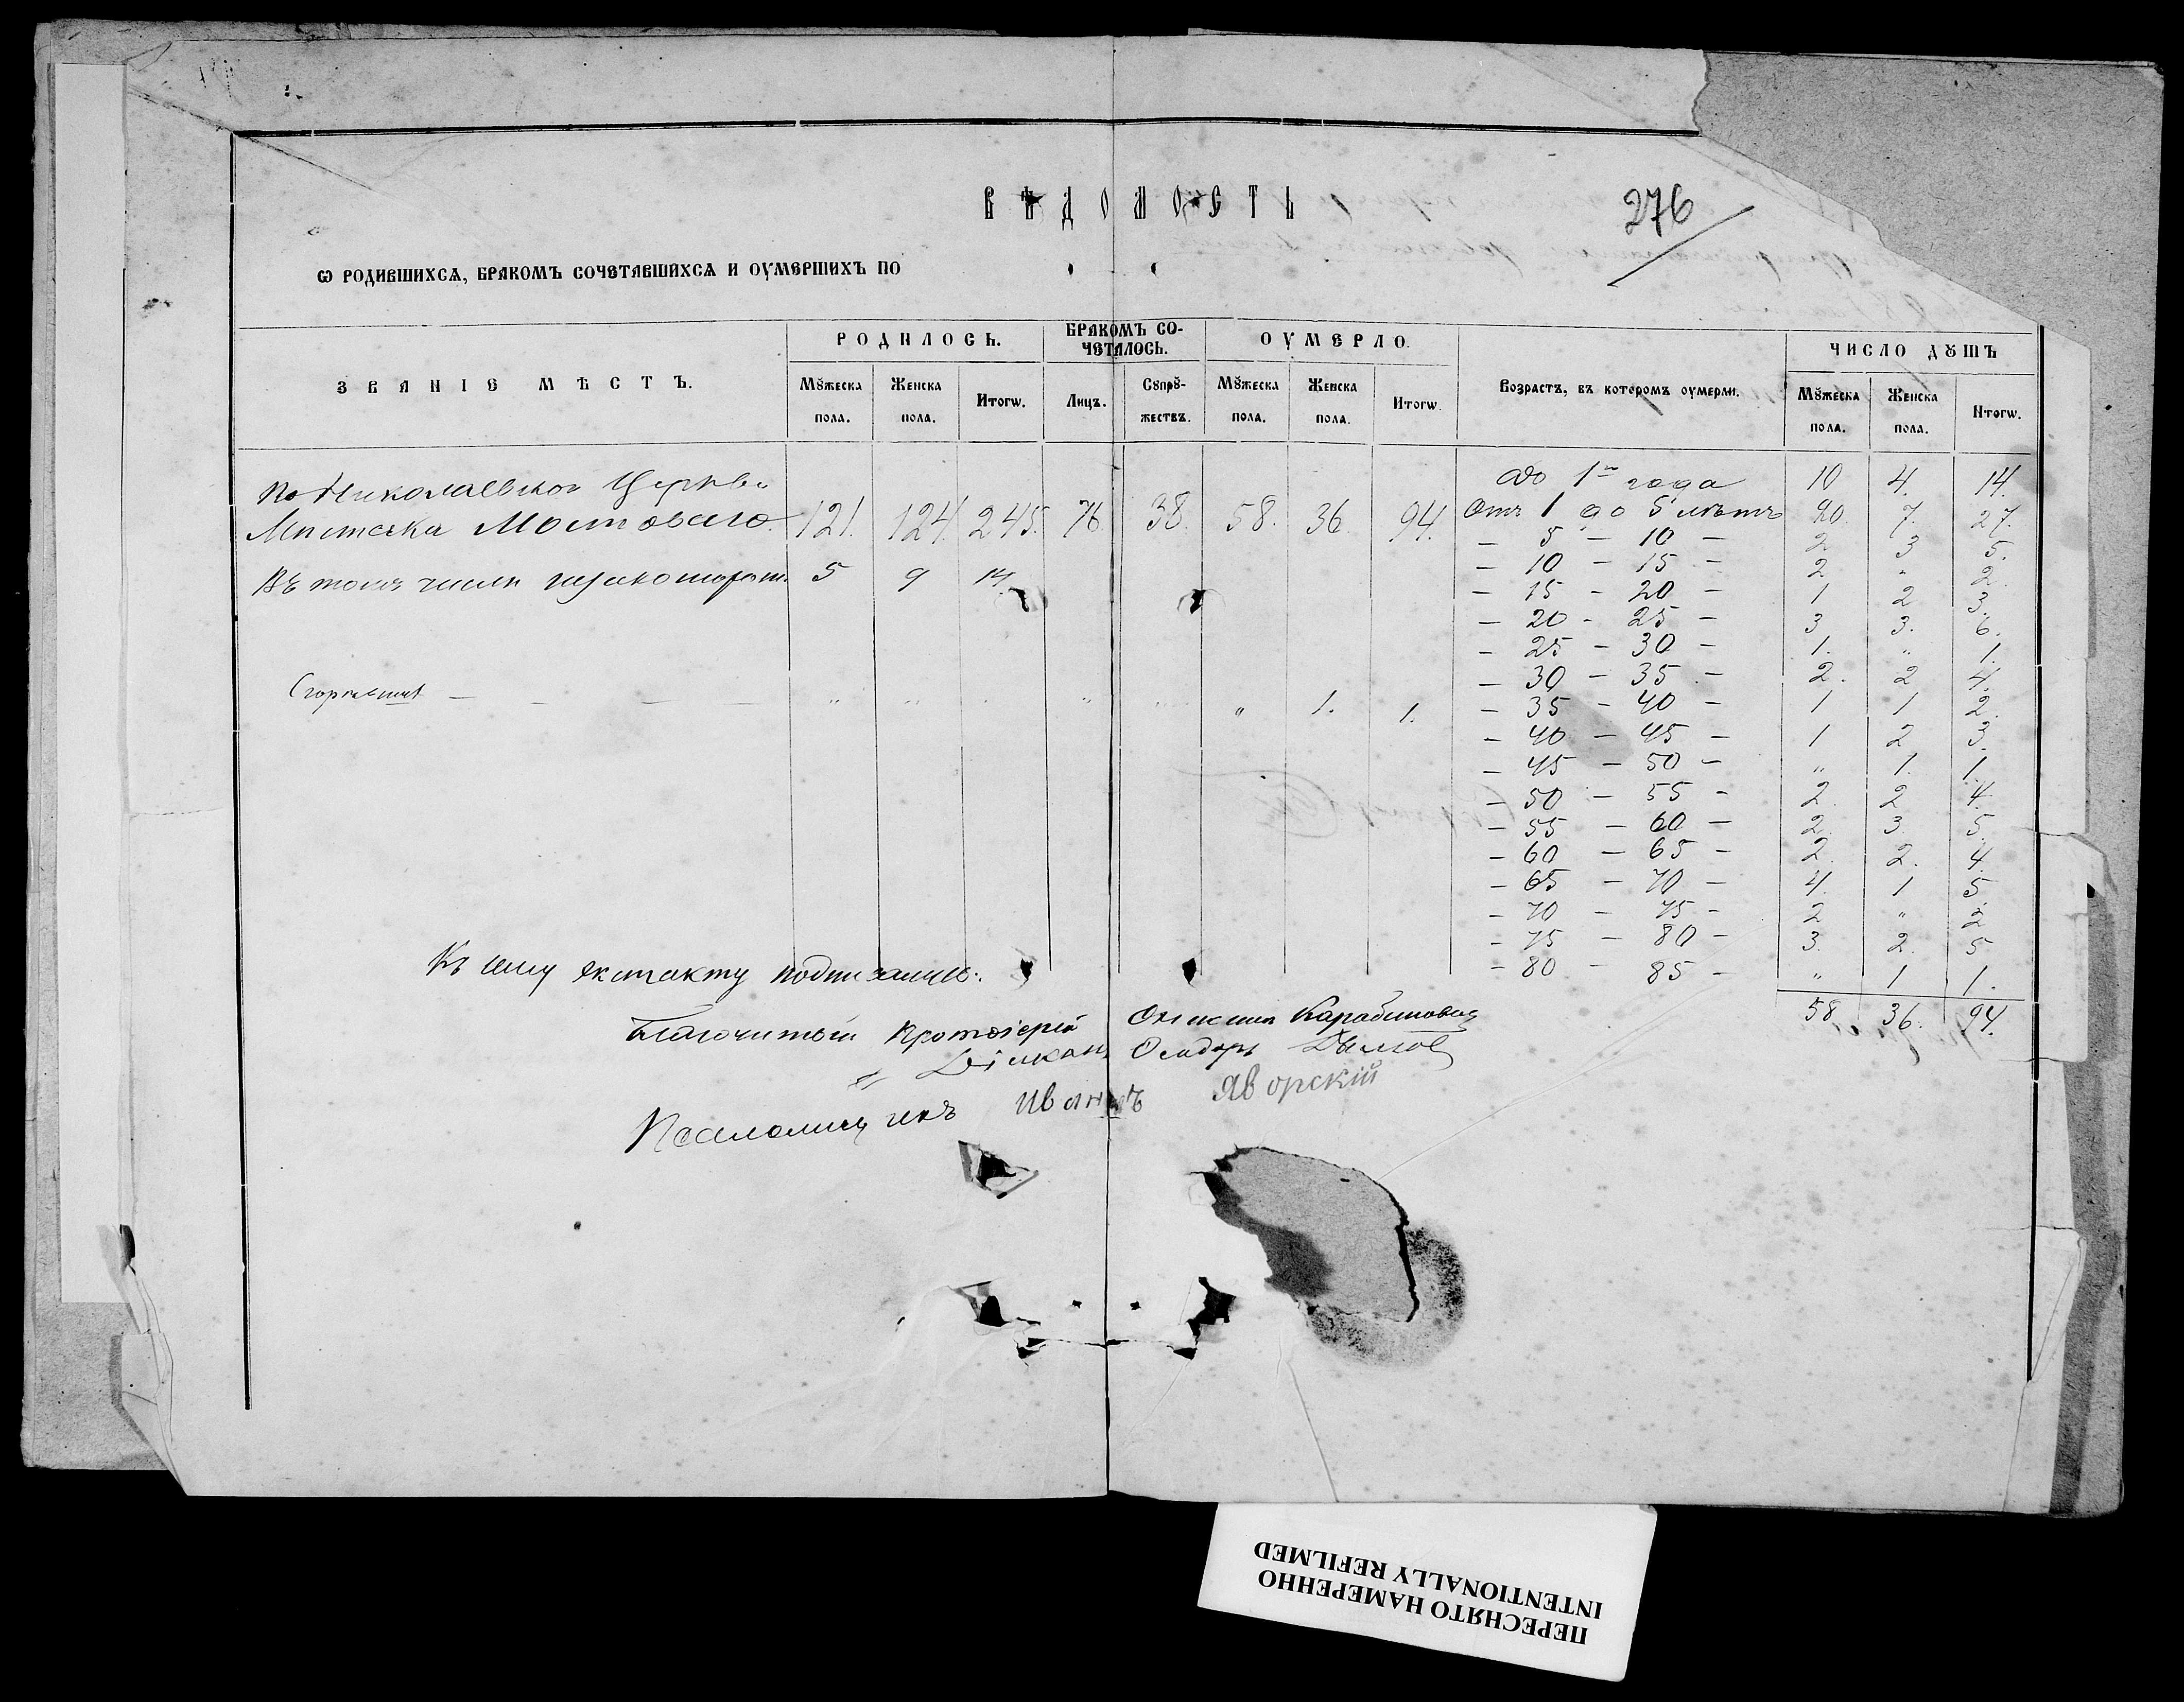 ВѢДОМОСТЬ
276
Ѡ РОДИВШИХСѦ, БРАКОМЪ СОЧЕТАВШИХСѦ И ОУМЕРШИХЪ ПО
ЗВАНІЕ МѢСТЪ.
РОДИЛОСЬ.
БРАКОМЪ СО-
ЧЕТАЛОСЬ.
ОУМЕРЛО.
Возрастъ, въ которомъ оумерли.
ЧИСЛО ДꙊШЪ
Мꙋжеска пола.
Женска пола.
Итогѡ.
Лицъ.
Сꙋпрꙋ-
жествъ.
Мꙋжеска пола.
Женска пола.
Итогѡ.
Мꙋжеска пола.
Женска пола.
Итогѡ.
По Николаевской Церкви
Мѣстечка Мостоваго 121. 124. 245. 76. 38. 58. 36. 94.
Въ томъ числѣ 5 9 14.
Сгорѣвшихъ — — — — " " . " " " 1. 1.
до 1го года 10 4. 14.
Отъ 1 до 5 лѣтъ 20. 7. 27.
— 5 — 10 — 2 3 5.
— 10 — 15 — 2 " 2.
— 15 — 20 — 1 2 3.
— 20 - 25 — 3 3. 6.
— 25 — 30 — 1. " 1.
— 30 — 35 — 2. 2 4.
— 35 - 40 — 1 1 2.
— 40 — 45 — 1 2 3.
— 45 — 50 — " 1. 1.
— 50 — 55 — 2. 2 4.
— 55 — 60 — 2. 3. 5.
— 60 — 65 — 2. 2. 4.
— 65 — 70 — 4. 1 5.
— 70 — 75 — 2 " 2
— 75 — 80 — 3. 2. 5
— 80 — 85 — " 1 1.
58 36. 94.
Къ сему экстракту подписались:
Благочинный Протоіерей Карабиновъ
Діаконъ
Псаломщикъ Иванъ Яворскій
ПЕРЕСНЯТО НАМЕРЕННО
INTENTIONALLY REFILMED